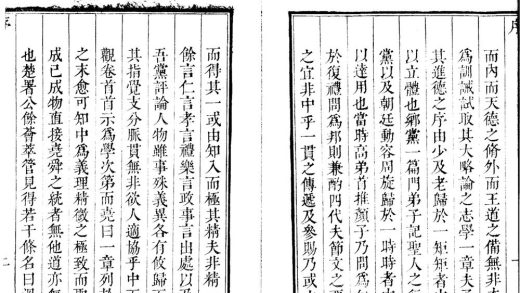 序
而內而天德之脩外而王道之備無非
爲訓誡試取其大略論之志學一章夫
其進德之序由少及老歸於一矩矩者
以立體也鄉黨一篇門弟子記聖人之行
黨以及朝廷動容周旋歸於一時時者
以達用也當時高弟首推顏子乃問爲
於復禮問爲邦則兼酌四代夫節文之
之宜非中乎一貫之傳遞及參賜乃或
而得其一或由知入而極其精夫非精
餘言仁言孝言禮樂言政事言出處以
吾黨評論人物雖事殊義異各有攸歸
其指覺支分脈貫無非欲人適協乎中
觀卷首首示爲學次第而堯曰一章列
之末愈可知中爲義理精微之極致而
成已成物直接堯舜之統者無他道亦
也楚署公餘薈萃管見得若干條名曰
序
二